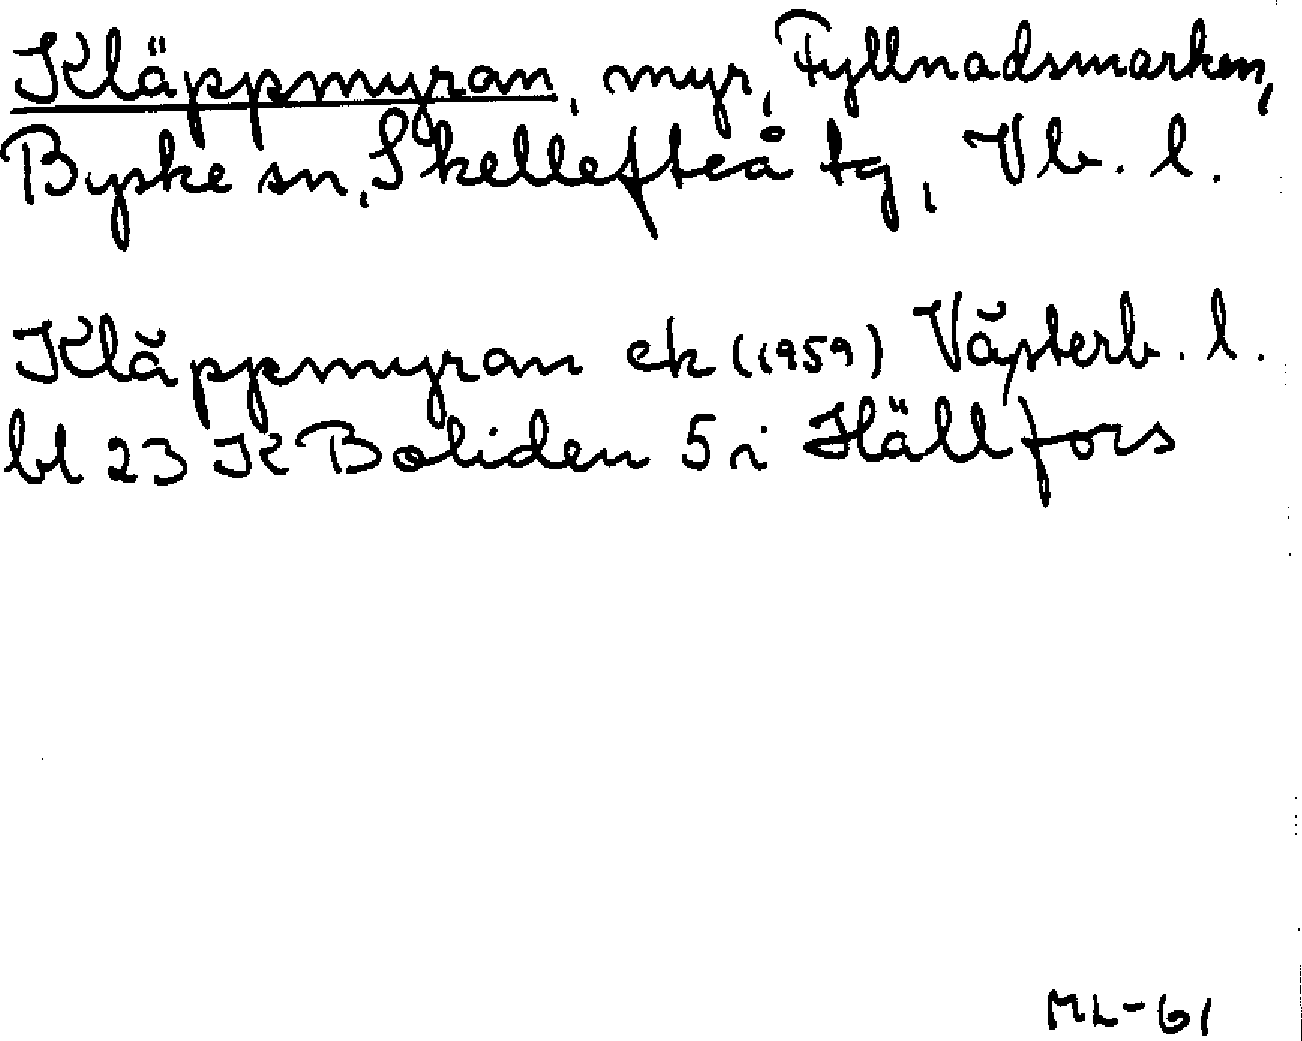 Kläppmyran, myr, Fyllnadsmarken,
Byske sn, Skellefteå tg, Vb. l.
Kläppmyran ek (1959) Västerb. l.
bl 23 K Boliden 5 i Hällfors
ML-61